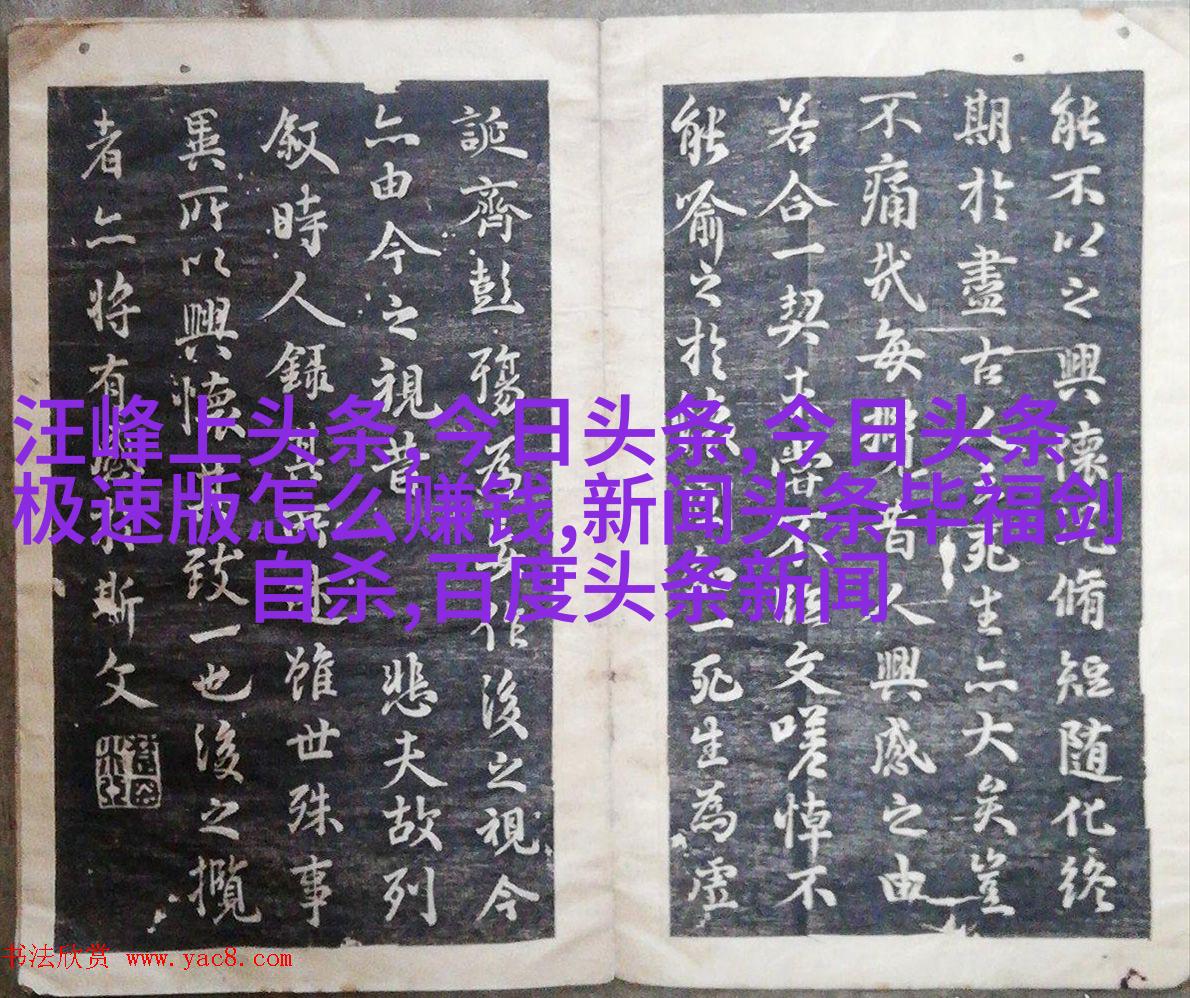 能不以之興懷况脩短随化終
期於盡古人云死生亦大矣豈
不痛哉每攬昔人興感之由
若合一契未嘗不臨文嗟悼不
能喻之於懷固知一死生為虛
誕齊彭殤為妄作後之視今
亦由今之視昔悲夫故列
敘時人錄其所述雖世殊事
異所以興懷其致一也後之攬
者亦将有感於斯文
汪峰上头条,今日头条,今日头条
极速版怎么赚钱,新闻头条毕福剑
自杀,百度头条新闻
书法欣赏 www.yac8.com